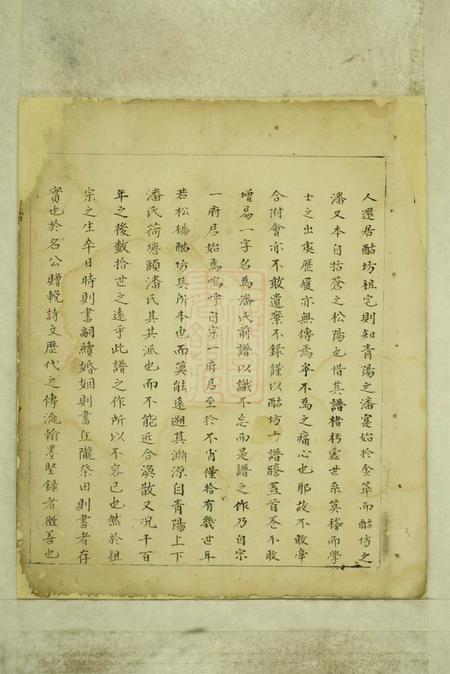 人還居酤坊祖宅則知青陽之潘寔始於金華而酤坊之
潘又本自括蒼之松陽也惜其譜楮朽蠹世系莫稽而學
士之出處歷履亦無傳焉寧不為之痛心也耶故不敢牽
合附會亦不敢遺棄不錄謹以酤坊一譜謄置首卷不敢
增易一字名為潘氏前譜以識不忘而是譜之作乃自宗
一府君始焉嗚呼自宗一府君至於不肖僅拾有幾世耳
若松楊酤坊其所本也而莫能遠遡其淵源自青陽上下
潘氏荷塘頭潘氏其其派也而不能近合渙散又況千百
年之後數拾世之遠乎此譜之作所以不容已也然於祖
宗之生卒日時則書嗣續婚姻則書丘隴祭田則書者存
實也於名公贈輓詩文歷代之傳流翰墨堅錄者徵善也